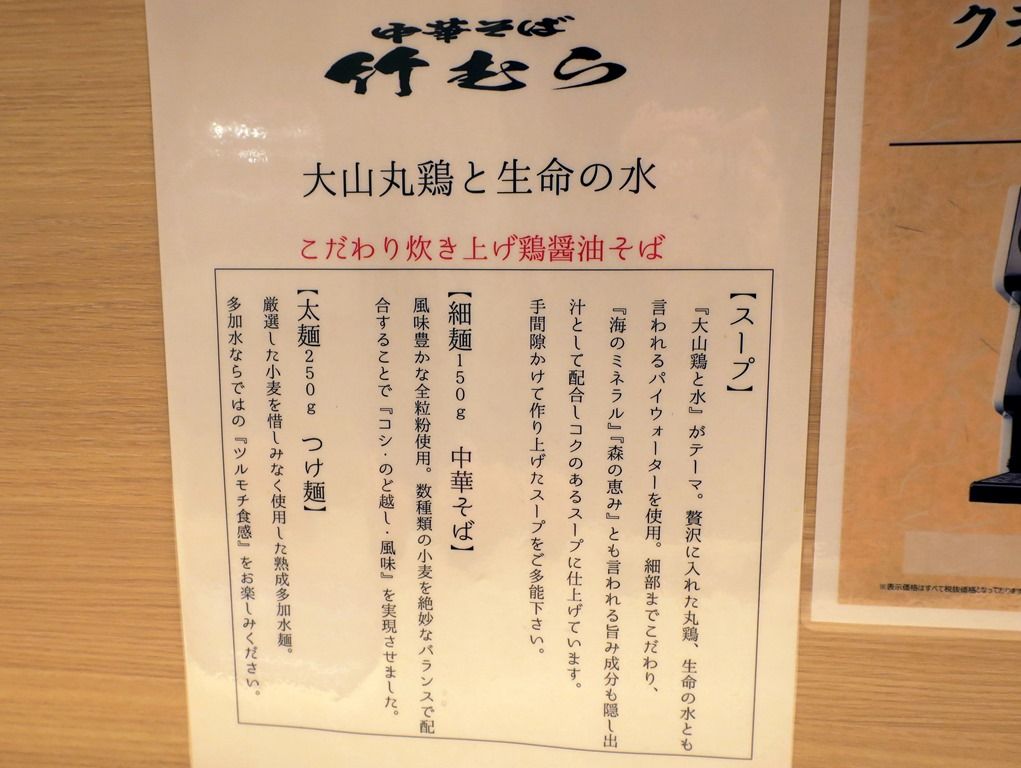 中華そば
竹むら
大山丸鶏と生命の水
こだわり炊き上げ鶏醤油そば
【スープ】
『大山鶏と水』がテーマ。贅沢に入れた丸鶏、生命の水とも
言われるパイウォーターを使用。細部までこだわり、
『海のミネラル』『森の恵み』とも言われる旨み成分も隠し出
汁として配合しコクのあるスープに仕上げています。
手間隙かけて作り上げたスープをご多能下さい。
【細麺150g 中華そば】
風味豊かな全粒粉使用。数種類の小麦を絶妙なバランスで配
合することで『コシ・のど越し・風味』を実現させました。
【太麺250g つけ麺】
厳選した小麦を惜しみなく使用した熟成多加水麺。
多加水ならではの『ツルモチ食感』をお楽しみください。
クラ
※表示価格はすべて税抜価格となっております